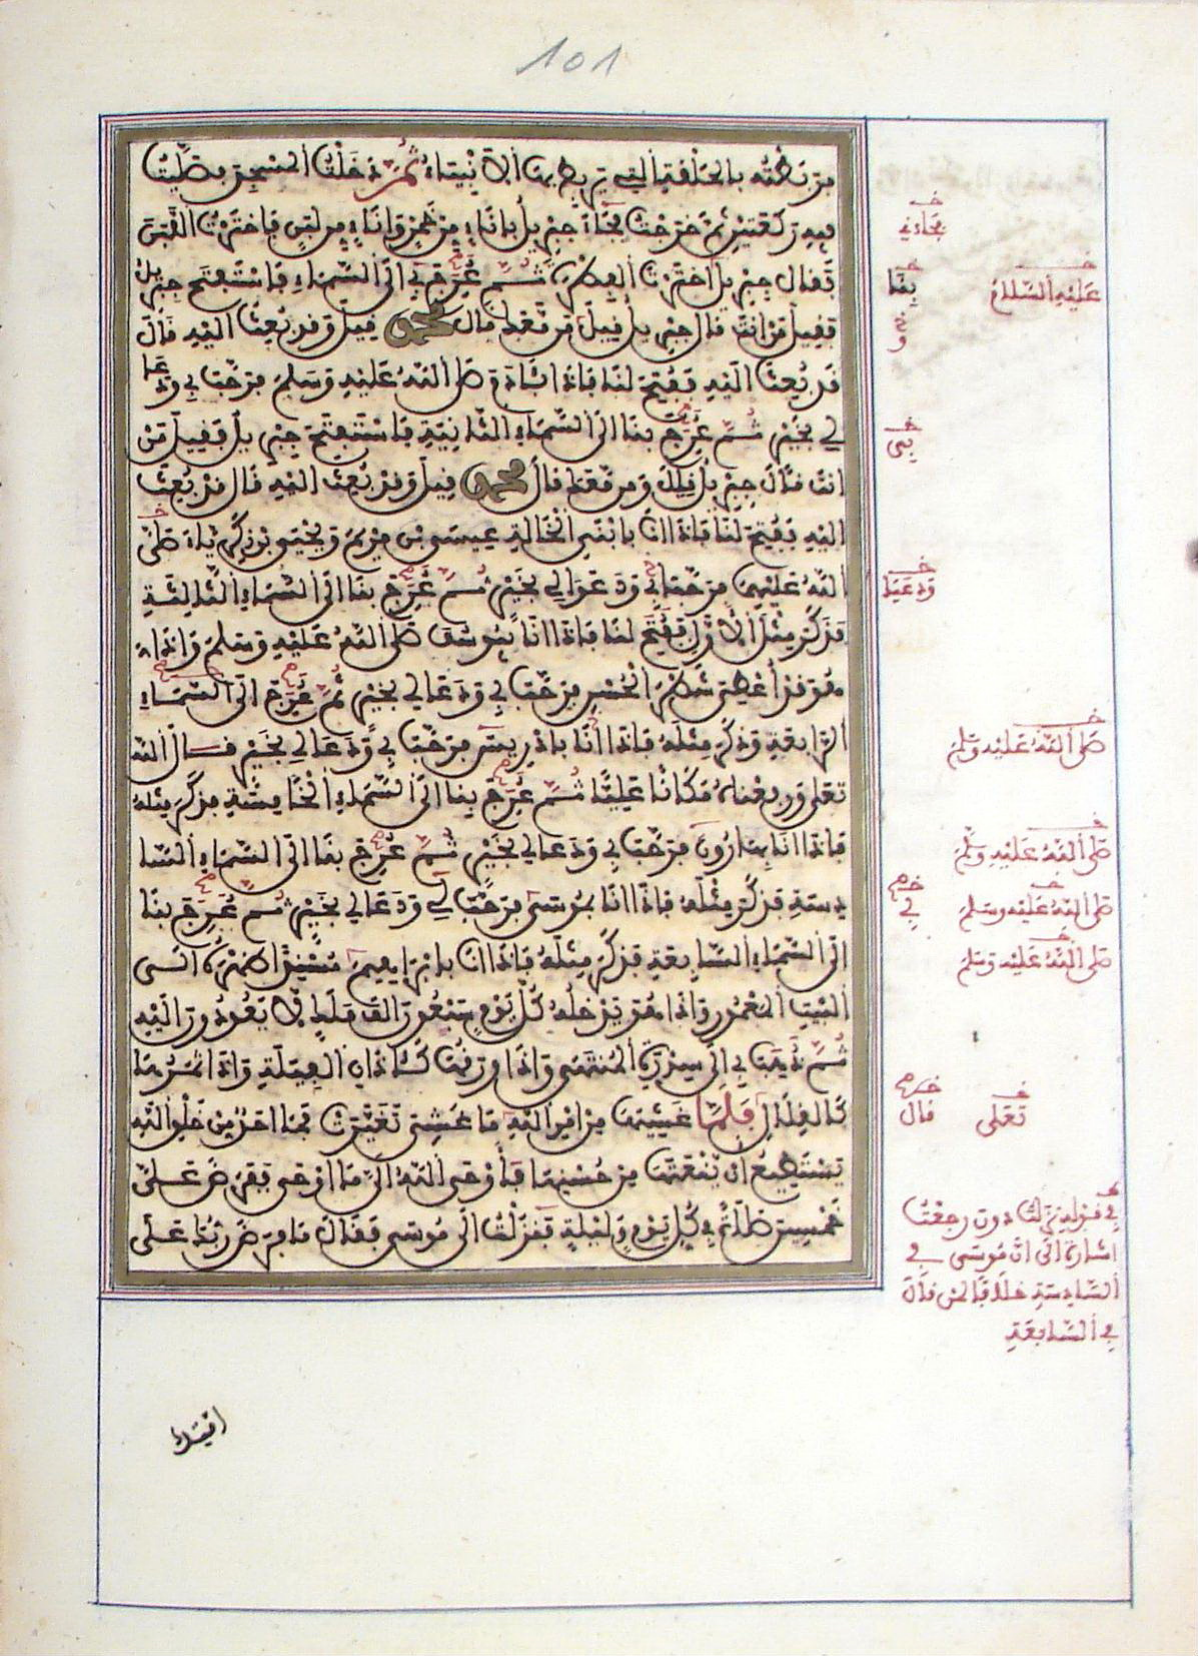 101
فربطته بالحلقة التي تربط بها الانبياء ثم دخلت المسجد فصليت
فيه ركعتين ثم خرجت فجاء جبريل باناء من خمر واناء من لبن فاخترت اللبن
فقال جبريل اخترت الفطرة ثم عرج بي الى السماء فاستفتح جبريل
فقيل من انت قال جبريل قيل من معك قال محمد قيل وقد بعث اليه قال
قد بعث اليه ففتح لنا فاذا انا بـادم صلى الله عليه وسلم فرحب بي ودعا
لي بخير ثم عرج بنا الى السماء الثانية فاستفتح جبريل فقيل من
انت قال جبريل قيل ومن معك قال محمد قيل وقد بعث اليه قال قد بعث
اليه ففتح لنا فاذا انا بابني الخالة عيسى بن مريم ويحيى بن زكرياء صلى
الله عليهما فرحبا بي ودعوا لي بخير ثم عرج بنا الى السماء الثالثة
فذكر مثل الاول ففتح لنا فاذا انا بيوسف صلى الله عليه وسلم واذا
هو قد اعطي شطر الحسن فرحب بي ودعا لي بخير ثم عرج الى السماء
الرابعة وذكر مثله فاذا انا بادريس فرحب بي ودعا لي بخير قال الله
تعلى ورفعناه مكانا عليا ثم عرج بنا الى السماء الخامسة فذكر مثله
فاذا انا بهارون فرحب بي ودعا لي بخير ثم عرج بنا الى السماء السا
دسة فذكر مثله فاذا انا بموسى فرحب بي ودعا لي بخير ثم عرج بنا
الى السماء السابعة فذكر مثله فاذا انا بابراهيم مسندا ظهره الى
البيت المعمور واذا هو يدخله كل يوم سبعون الف ملك لا يعودون اليه
ثم ذهب بي الى سدرة المنتهى واذا ورقها كـاذان الفيلة واذا ثمرها
كالقلال فلما غشيها من امر الله ما غشي تغيرت فما احد من خلق الله
يستطيع ان ينعتها من حسنها فأوحى الله الي ما اوحى ففرض علي
خمسين صلاة في كل يوم وليلة فنزلت الى موسى فقال ما فرض ربك على
فجاءني
عليه السلام
بنا
بي
ودعيا
صلى الله عليه وسلم
صلى الله عليه وسلم
صلى الله عليه وسلم
بي
صلى الله عليه وسلم
تعلى
قال
في قوله نزلت دون رجعت
اشارة الى ان موسى في
السادسة خلافا لمن قال
في السابعة
امتك